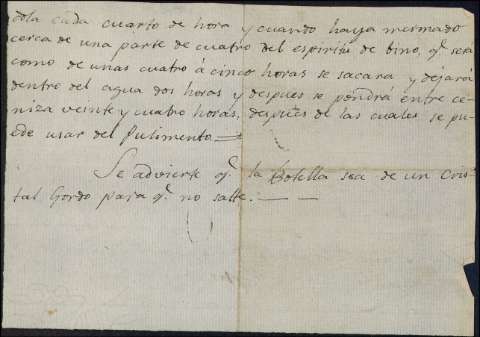 dola cada cuarto de hora y cuando haya mermado
cerca de una parte de cuatro del espiritu de bino, q.e sera
como de unas cuatro á cinco horas se sacara y dejará
dentro del agua dos horas y despues se pondrá entre ce-
niza veinte y cuatro horas, despues de las cuales se pu-
ede usar del pulimento
Se advierte q.e la Botella sea de un Cris-
tal Gordo para q.e no salte.